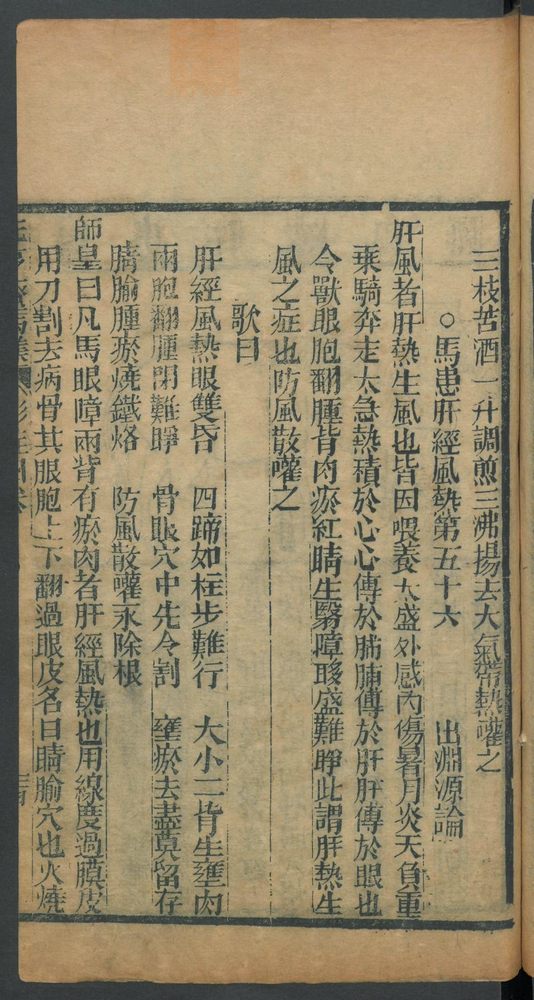 三枝苦酒一升調煎三沸揚去大氣帶熱灌之
○馬患肝經風熱第五十六 出淵源論
肝風者肝熱生風也皆因喂養太盛外感內傷暑月炎天負重
乘騎奔走太急熱積於心心傳於肺肺傳於肝肝傳於眼也
令獸眼胞翻腫眥肉瘀紅睛生翳障眵盛難睜此謂肝熱生
風之症也防風散嚾之
歌曰
肝經風熱眼雙昏 四蹄如柱步難行 大小二眥生壅肉
兩胞翻腫閉難睜 骨眼穴中先令割 壅瘀去盡莫留存
睛腧腫瘀燒鐵烙 防風散嚾永除根
師皇曰凡馬眼障兩眥有瘀肉者肝經風熱也用線度過膜皮
用刀割去病骨其眼胞上下翻過眼皮名曰睛腧穴也火燒